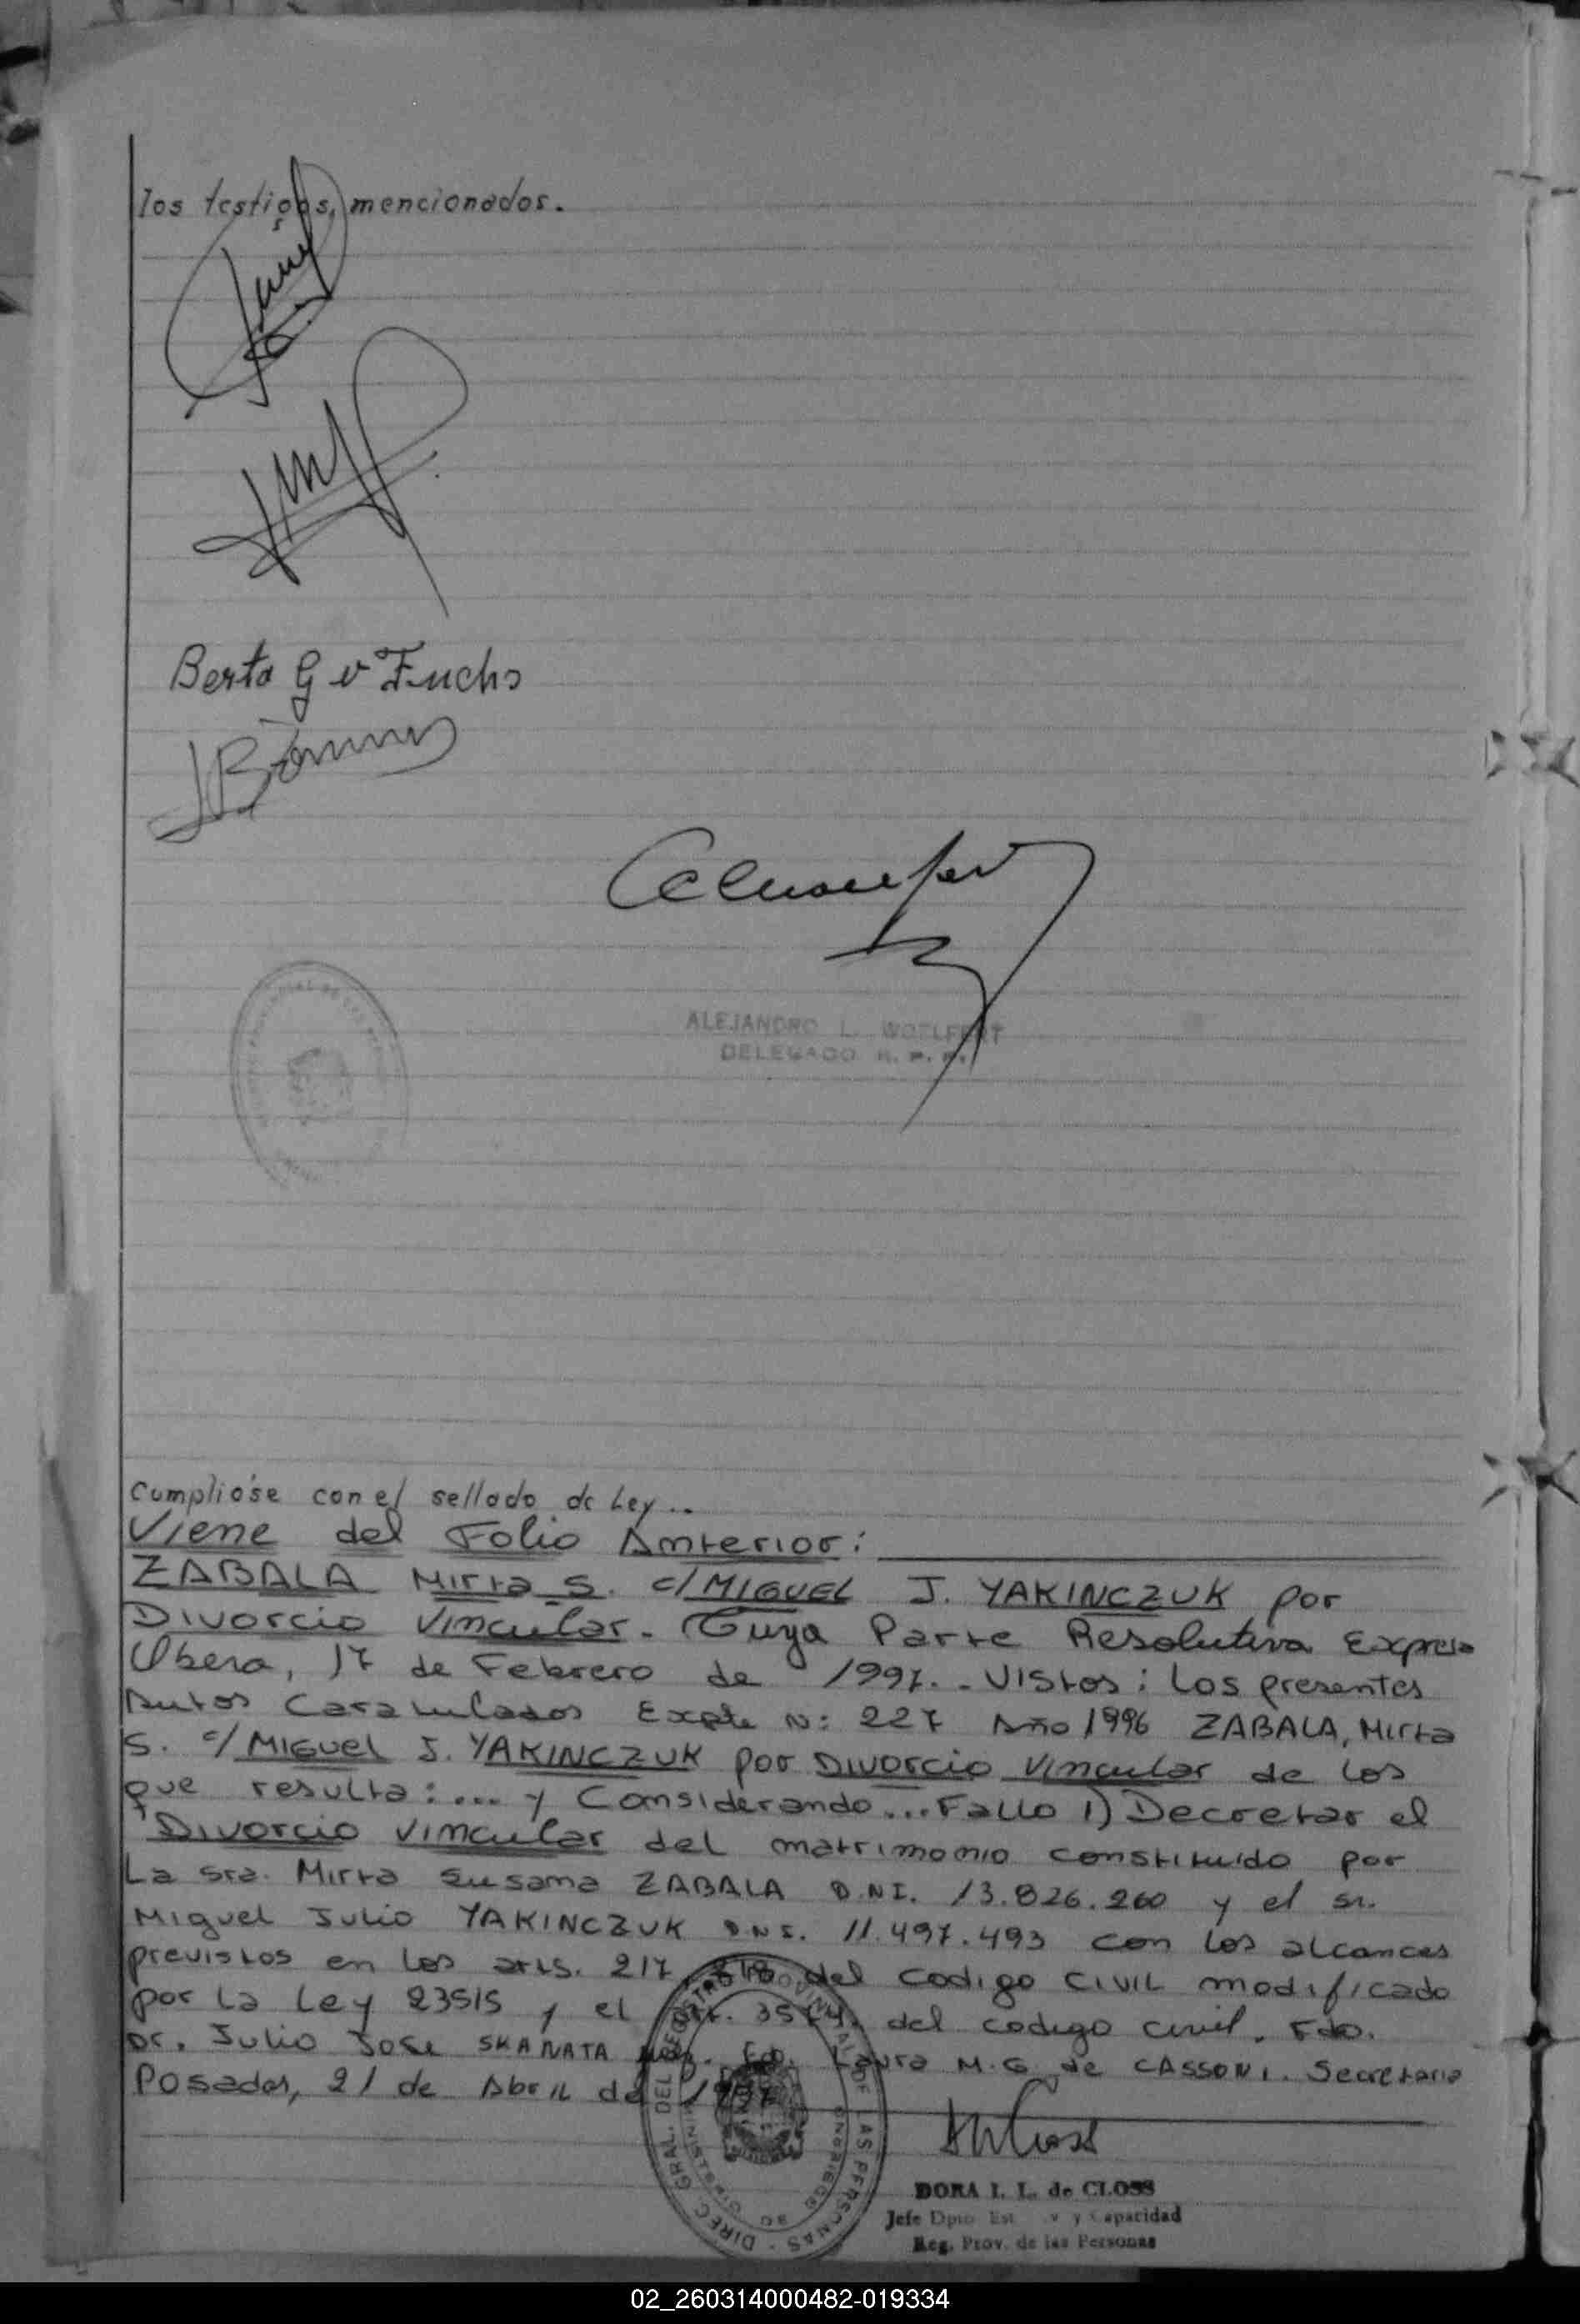 los testigos, mencionados.
Berta G v Fuchs
ALEJANDRO L. WOELFERT
DELEGADO R. P. P.
Cumplióse con el sellado de Ley..
Viene del Folio Anterior:
ZABALA Mirta S. c/ MIGUEL J. YAKINCZUK por
Divorcio Vincular. Cuya Parte Resolutiva Expresa
Obera, 17 de Febrero de 1997.- Vistos: Los presentes
Autos Caratulados Expte N: 227 Año 1996 ZABALA, Mirta
S. c/ MIGUEL J. YAKINCZUK por Divorcio Vincular de los
que resulta:... y Considerando... Fallo 1) Decretar el
Divorcio Vincular del matrimonio constituido por
La Sra. Mirta Susana ZABALA D.NI. 13.826.260 y el sr.
Miguel Julio YAKINCZUK DNI. 11.497.493 con los alcances
previstos en los arts. 217, 218 del Codigo CIVIL modificado
por La Ley 23515 y el Art. 3574. del codigo civil. Fdo.
Dr. Julio Jose SKANATA Juez. Fdo. Laura M.G de CASSONI. Secretaria
Posadas, 21 de Abril de 1997
DIREC. GRAL. DEL REGISTRO PROVINCIAL DE LAS PERSONAS
DORA I. L. de CLOSS
Jefe Dpto Est y Capacidad
Reg. Prov. de las Personas
02_260314000482-019334